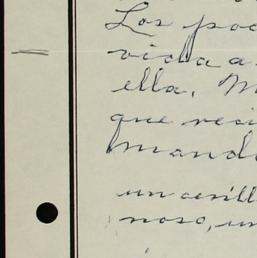 Los poc
vida a
ella. M
que reci
mando
un cerill
noso, un